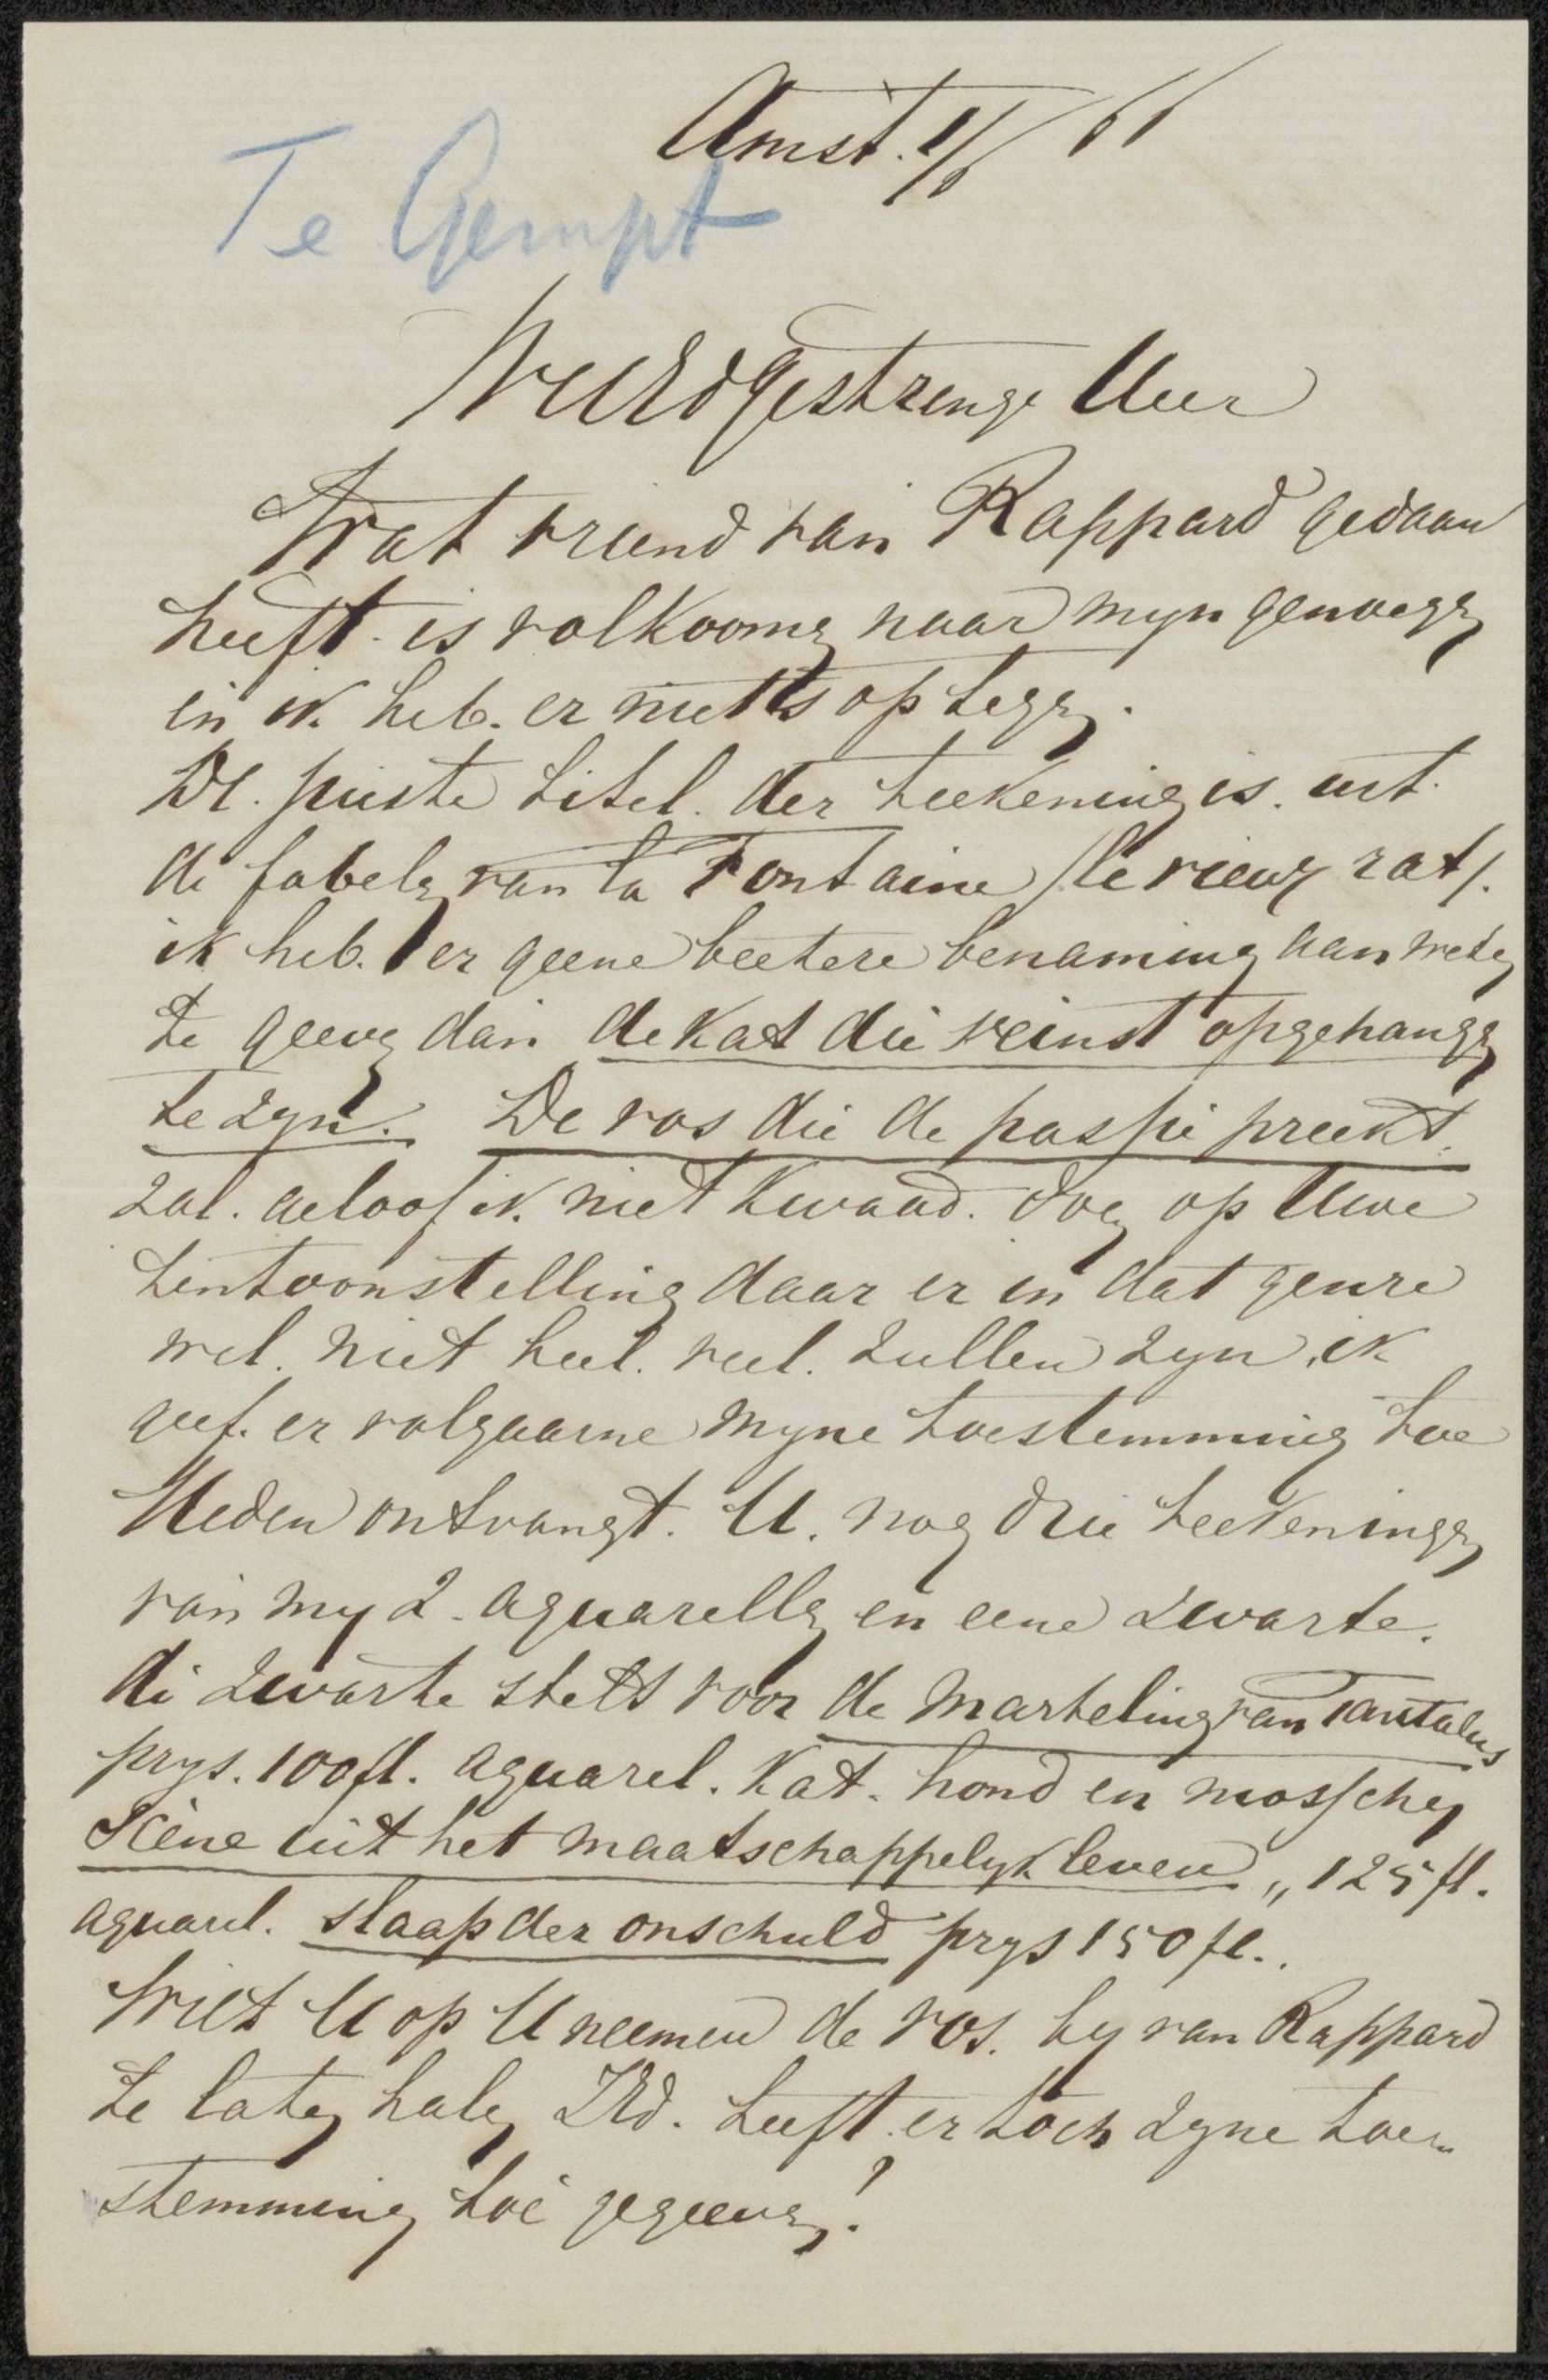 Amst. 1/6 66
Te Gempt
WelEdGestrenge Heer
Wat vriend van Rappard gedaan
heeft is volkoomen naar myn genoegen
en ik heb er niets op tegen.
De juiste titel der teekening is uit
de fabelen van la Fontaine /le vieux rat/.
ik heb er geene beetere benaming aan weten
te geeven dan de Kat die veinst opgehangen
te zyn. De vos die de passie preekt
zal geloof ik niet kwaad doen op Uwe
tentoonstelling daar er in dat genre
wel niet heel veel zullen zyn, ik
geef er volgaarne myne toestemming toe
Heden ontvangt U. nog drie teekeningen
van my 2 aquarellen en eene zwarte.
de zwarte stelt voor de marteling van Tantalus
prys. 100 fl. aquarel. Kat. hond en mosschen
Scène uit het maatschappelyk leven „ 125 fl.
aquarel. slaap der onschuld prys 150 fl..
Wilt U op U neemen de vos. by van Rappard
te laten halen ZEd. heeft er toch zyne toe„
stemming toe gegeeven?